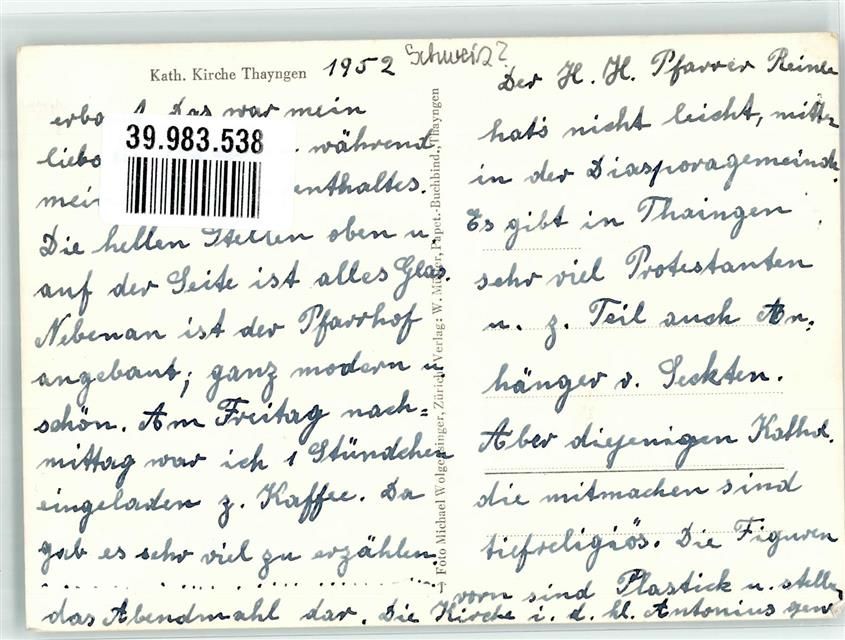 Kath. Kirche Thayngen 1952 Schweiz?
erbo Das war mein
liebs während
mein enthaltes.
39.983.538
Die hellen Stellen oben u.
auf der Seite ist alles Glas.
Nebenan ist der Pfarrhof
angebaut; ganz modern u.
schön. Am Freitag nach=
mittag war ich 1 Stündchen
eingeladen z. Kaffee. Da
gab es sehr viel zu erzählen.
→ Foto Michael Wolgensinger, Zürich, Verlag: W. Müller, Papet.-Buchbind., Thayngen
Der H. H. Pfarrer Reinle
hat's nicht leicht, mitt=
in der Diasporagemeinde.
Es gibt in Thaingen
sehr viel Protestanten
u. z. Teil auch An,
hänger v. Seckten.
Aber diejenigen Kathol.
die mitmachen sind
tiefreligiös. Die Figuren
vorn sind Plastick u. stellen
das Abendmahl dar. Die Kirche i. d. hl. Antonius gew